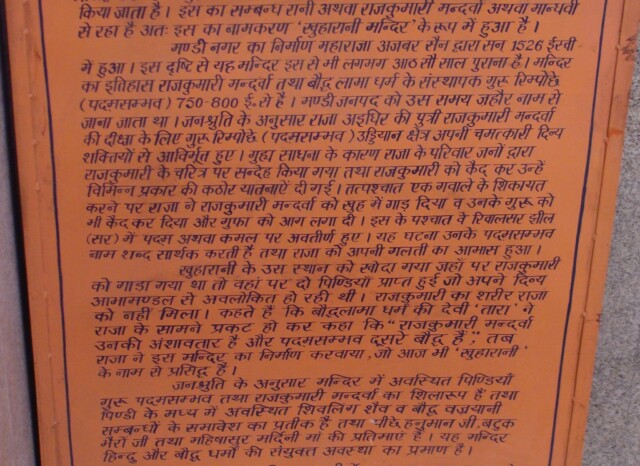 किया जाता है। इस का सम्बन्ध रानी अथवा राजकुमारी मन्दर्वा अथवा मान्धवी
से रहा है अतः इस का नामकरण 'खुहारानी मन्दिर' के रूप में हुआ है।
मण्डी नगर का निर्माण महाराजा अजबर सैन द्वारा सन 1526 ईस्वी
में हुआ। इस दृष्टि से यह मन्दिर इस से भी लगभग आठ सौ साल पुराना है। मन्दिर
का इतिहास राजकुमारी मन्दर्वा तथा बौद्ध लामा धर्म के संस्थापक गुरू रिम्पोछे
(पदमसम्भव) 750-800 ई. से है। मण्डी जनपद को उस समय जहौर नाम से
जाना जाता था। जनश्रुति के अनुसार राजा अर्इाधर की पुत्री राजकुमारी मन्दर्वा
की दीक्षा के लिए गुरू रिम्पोछे (पदमसम्भव) उड्डियान क्षेत्र अपनी चमत्कारी दिव्य
शक्तियों से आविर्भूत हुए। गुह्य साधना के कारण राजा के परिवार जनों द्वारा
राजकुमारी के चरित्र पर सन्देह किया गया तथा राजकुमारी को कैद कर उन्हें
विभिन्न प्रकार की कठोर यातनाऐं दी गई। तत्पश्चात एक गवाले के शिकायत
करने पर राजा ने राजकुमारी मन्दर्वा को खुह में गाड़ दिया व उनके गुरू को
भी कैद कर दिया और गुफा को आग लगा दी। इस के पश्चात वे रिवालसर झील
(सर) में पदम अथवा कमल पर अवतीर्ण हुए। यह घटना उनके पदमसम्भव
नाम शब्द सार्थक करती है तथा राजा को अपनी गलती का आभास हुआ।
खुहारानी के उस स्थान को खोदा गया जहाँ पर राजकुमारी
को गाड़ा गया था तो वहां पर दो पिण्डियाँ प्राप्त हुई जो अपने दिव्य
आभामण्डल से अवलोकित हो रही थी। राजकुमारी का शरीर राजा
को नहीं मिला। कहते हैं कि बौद्धलामा धर्म की देवी 'तारा' ने
राजा के सामने प्रकट हो कर कहा कि "राजकुमारी मन्दर्वा
उनकी अंशावतार है और पदमसम्भव दूसरे बौद्ध हैं", तब
राजा ने इस मन्दिर का निर्माण करवाया, जो आज भी 'खुहारानी'
के नाम से प्रसिद्ध है।
जनश्रुति के अनुसार मन्दिर में अवस्थित पिण्डियाँ
गुरू पदमसम्भव तथा राजकुमारी मन्दर्वा का शिलारूप हैं तथा
पिण्डी के मध्य में अवस्थित शिवलिंग शैव व बौद्ध वज्रयानी
सम्बन्धों के समावेश का प्रतीक है तथा पीछे हनुमान जी, बटुक
भैरों जी तथा महिषासुर मर्दिनी मां की प्रतिमाऐं है। यह मन्दिर
हिन्दु और बौद्ध धर्मो की संयुक्त अवस्था का प्रमाण है।